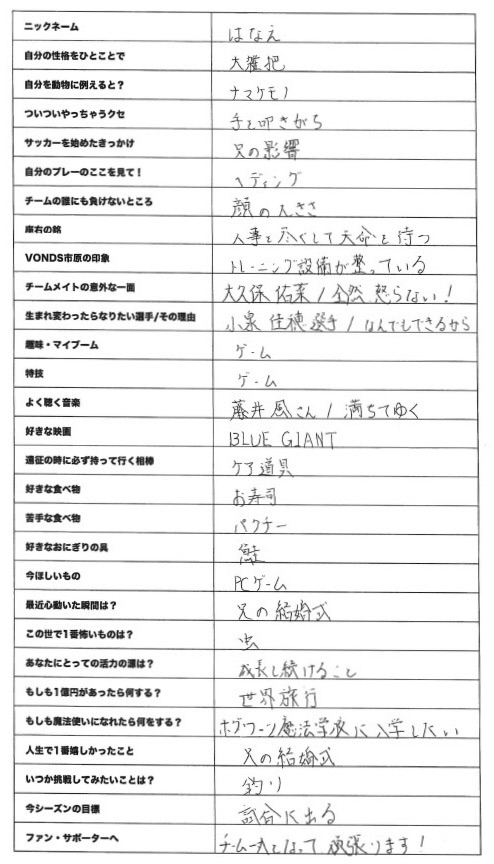 ニックネーム はなえ
自分の性格をひとことで 大雑把
自分を動物に例えると？ ナマケモノ
ついついやっちゃうクセ 手を叩きがち
サッカーを始めたきっかけ 兄の影響
自分のプレーのここを見て！ ヘディング
チームの誰にも負けないところ 顔の大きさ
座右の銘 人事を尽くして天命を待つ
VONDS市原の印象 トレーニング設備が整っている
チームメイトの意外な一面 大久保佑菜/全然怒らない！
生まれ変わったらなりたい選手/その理由 小泉佳穂選手/なんでもできるから
趣味・マイブーム ゲーム
特技 ゲーム
よく聴く音楽 藤井風さん/満ちてゆく
好きな映画 BLUE GIANT
遠征の時に必ず持って行く相棒 ケア道具
好きな食べ物 お寿司
苦手な食べ物 パクチー
好きなおにぎりの具 鮭
今ほしいもの PCゲーム
最近心動いた瞬間は？ 兄の結婚式
この世で1番怖いものは？ 虫
あなたにとっての活力の源は？ 成長し続けること
もしも1億円があったら何する？ 世界旅行
もしも魔法使いになれたら何をする？ ホグワーツ魔法学校に入学したい
人生で1番嬉しかったこと 兄の結婚式
いつか挑戦してみたいことは？ 釣り
今シーズンの目標 試合に出る
ファン・サポーターへ チーム一丸となって頑張ります！